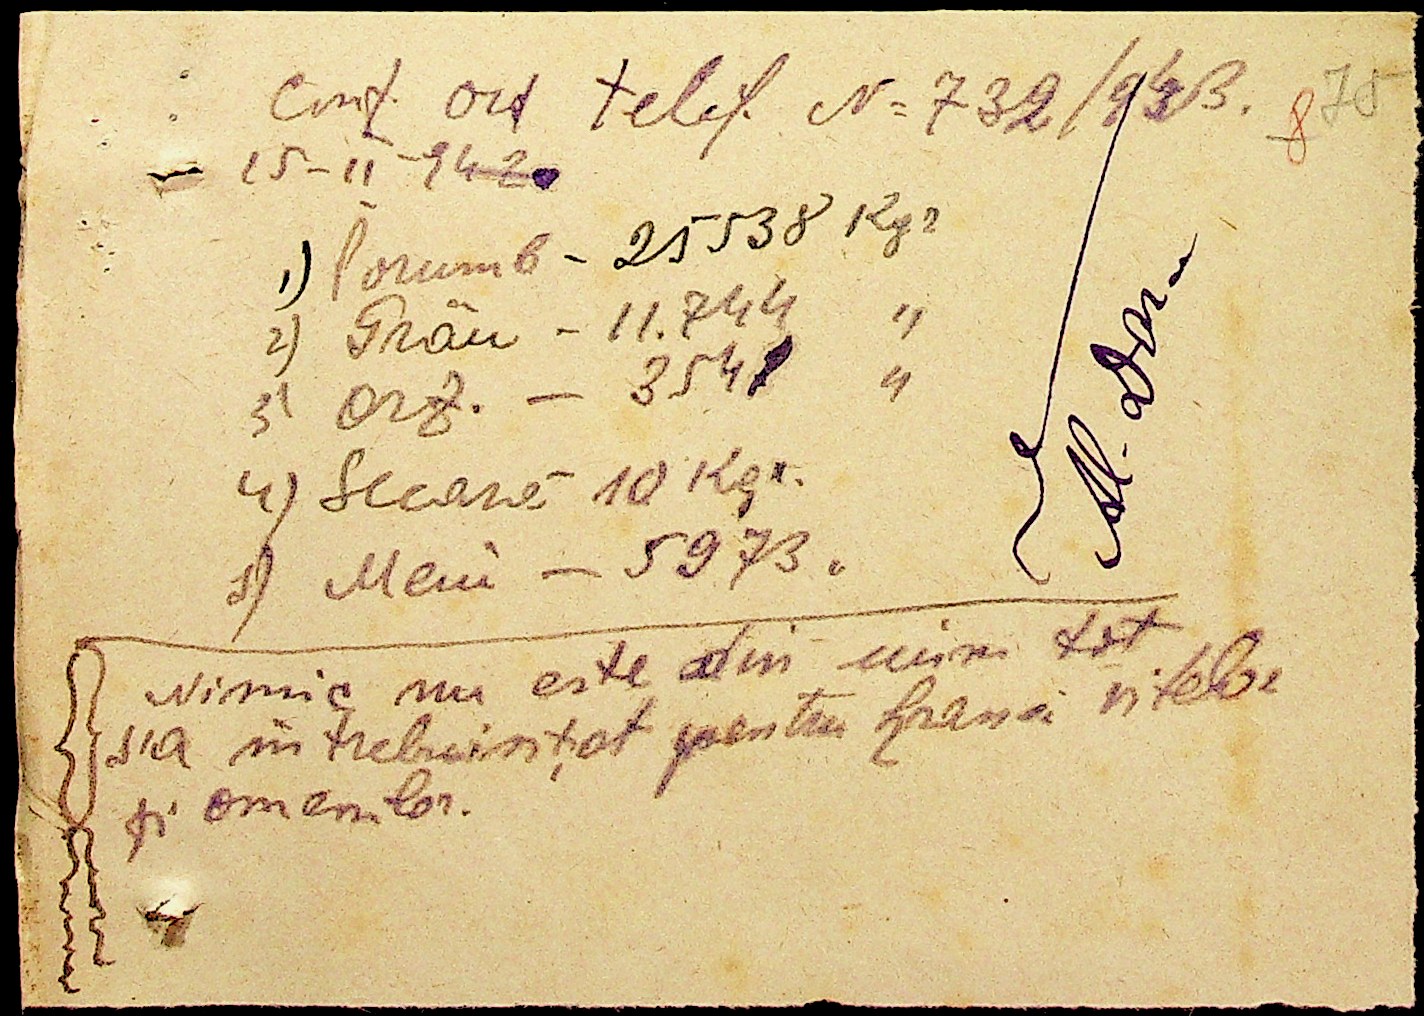 Conf. ord telef. N= 732/943. 8 75
15-II-942
1) Porumb - 25538 Kgr
2) Grâu - 11.744 "
3) Orz. - 3541 "
4) Secară 10 Kgr.
5) Meiu - 5973.
Nimic nu este din nim tot
s'a întrebuințat pentru hrana vitelor
și omenilor.